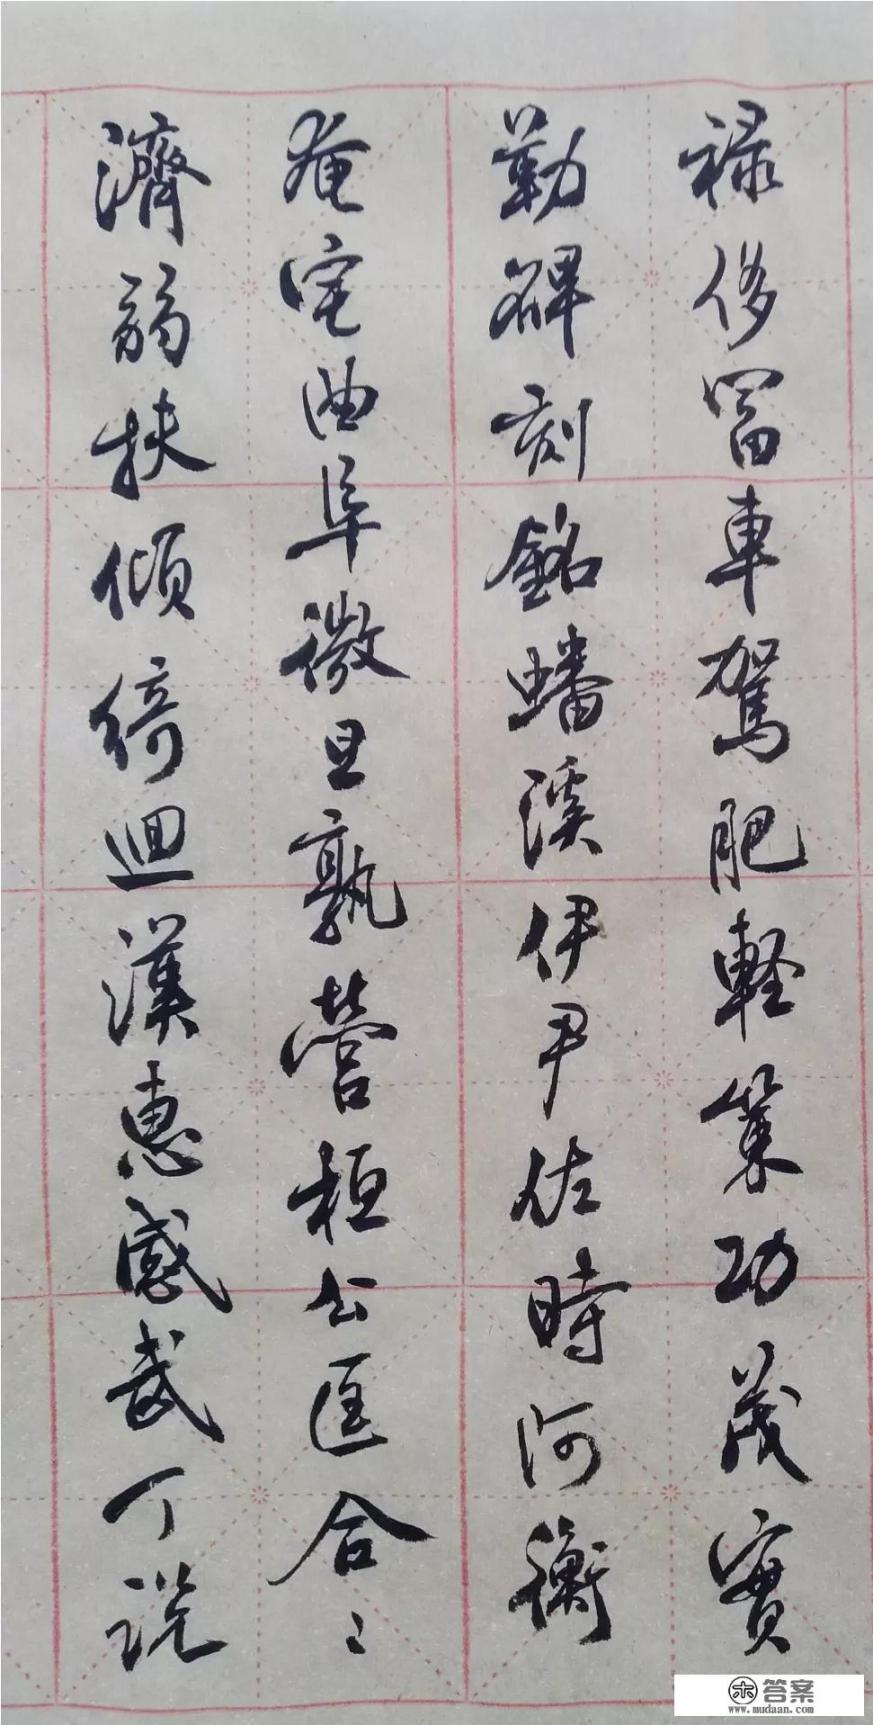 禄侈富車駕肥軽策功茂實
勒碑刻銘蟠溪伊尹佐時阿衡
奄宅曲阜微旦孰營桓公匡合〻
濟弱扶傾綺迴漢惠感武丁説
答案
www.mudaan.com